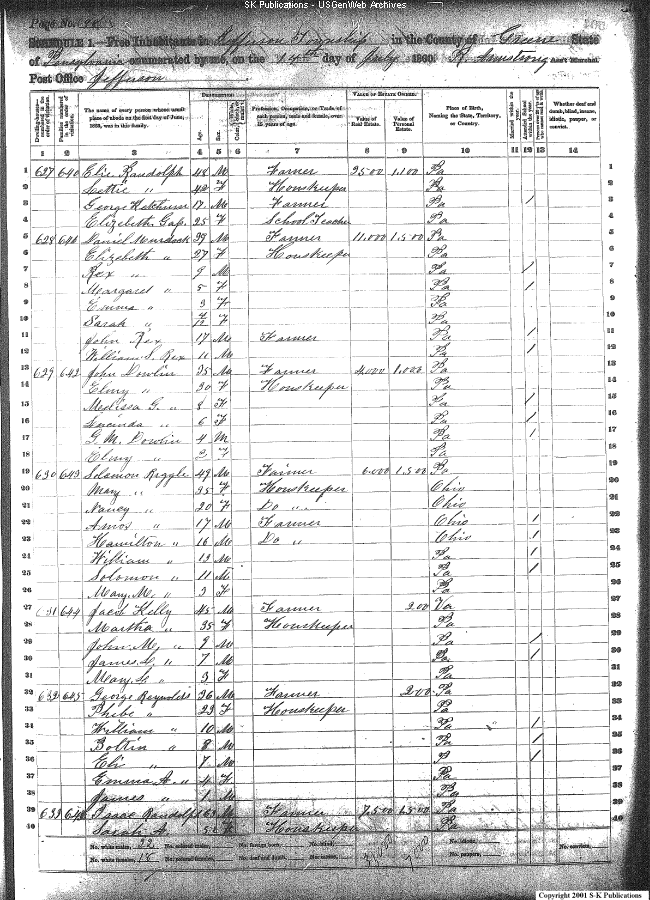 SK Publications - USGenWeb Archives
Page No. 90
SCHEDULE 1.—Free Inhabitants in Jefferson Township in the County of Greene State
of Pensylvania enumerated by me, on the 14th day of July 1860. R. Armstrong Ass't Marshal.
Post Office Jefferson
DESCRIPTION VALUE OF ESTATE OWNED
Dwelling-houses—numbered in the order of visitation. Families numbered in the order of visitation. The name of every person whose usual place of abode on the first day of June, 1860, was in this family. Age. Sex. Color Profession, Occupation, or Trade of each person, male and female, over 15 years of age. Value of Real Estate. Value of Personal Estate. Place of Birth, Naming the State, Territory, or Country. Married within the year. Attended School within the year. Whether deaf and dumb, blind, insane, idiotic, pauper, or convict.
1 2 3 4 5 6 7 8 9 10 11 12 13 14
1 627 640 Elie Randolph 48 M Farmer 2500 1,100 Pa 1
2 Lettie " 42 F Houskeeper Pa 2
3 George 17 M Farmer Pa / 3
4 Elizebeth Gap. 25 F School Teacher Pa 4
5 628 641 Daniel Murdock 39 M Farmer 11,000 1,500 Pa 5
6 Elizebeth " 27 F Houskeeper Pa 6
7 Rex " 9 M Pa / 7
8 Margaret " 5 F Pa / 8
9 Emma " 3 F Pa 9
10 Sarah " F Pa 10
11 John Rex 17 M Farmer Pa / 11
12 William S. Rex 11 M Pa / 12
13 629 642 John Dowlin 35 M Farmer 4,000 1,000 Pa 13
14 Elmy " 30 F Houskeeper Pa 14
15 Melissa G. " 8 F Pa / 15
16 Lucinda " 6 F Pa / 16
17 G. M. Dowlin 4 M Pa / 17
18 Elmy " 2 F Pa 18
19 630 643 Solomon Riggle 49 M Farmer 6,000 1,500 Pa 19
20 Mary " 35 F Houskeeper Ohio 20
21 Nancy " 20 F Do " Ohio 21
22 Amos " 17 M Farmer Ohio / 22
23 Hamilton " 16 M Do " Ohio / 23
24 William " 13 M Pa / 24
25 Solomon " 11 M Pa / 25
26 Mary M. " 3 F Pa 26
27 631 644 Jacob Kelly 45 M Farmer 200 Va 27
28 Martha " 35 F Houskeeper Pa 28
29 John M. " 9 M Pa / 29
30 James L. " 7 M Pa / 30
31 Mary " 3 F Pa 31
32 632 645 George Reynolds 36 M Farmer 200 Pa 32
33 Phebe " 29 F Houskeeper Pa 33
34 William " 10 M Pa / 34
35 Bottin " 8 M Pa / 35
36 Eli " 7 M P / 36
37 Emma A. " 4 F Pa 37
38 James " 1 M Pa 38
39 633 646 Isaac Randolph 63 M Farmer 7,500 1,500 Pa 39
40 Sarah A F Houskeeper Pa 40
No. white males, 22 No. colored males, No. foreign born, No. blind, No. idiotic, No. convicts,
No. white females, 18 No. colored females, No. deaf and dumb, No. insane, No. paupers,
Copyright 2001 S-K Publications